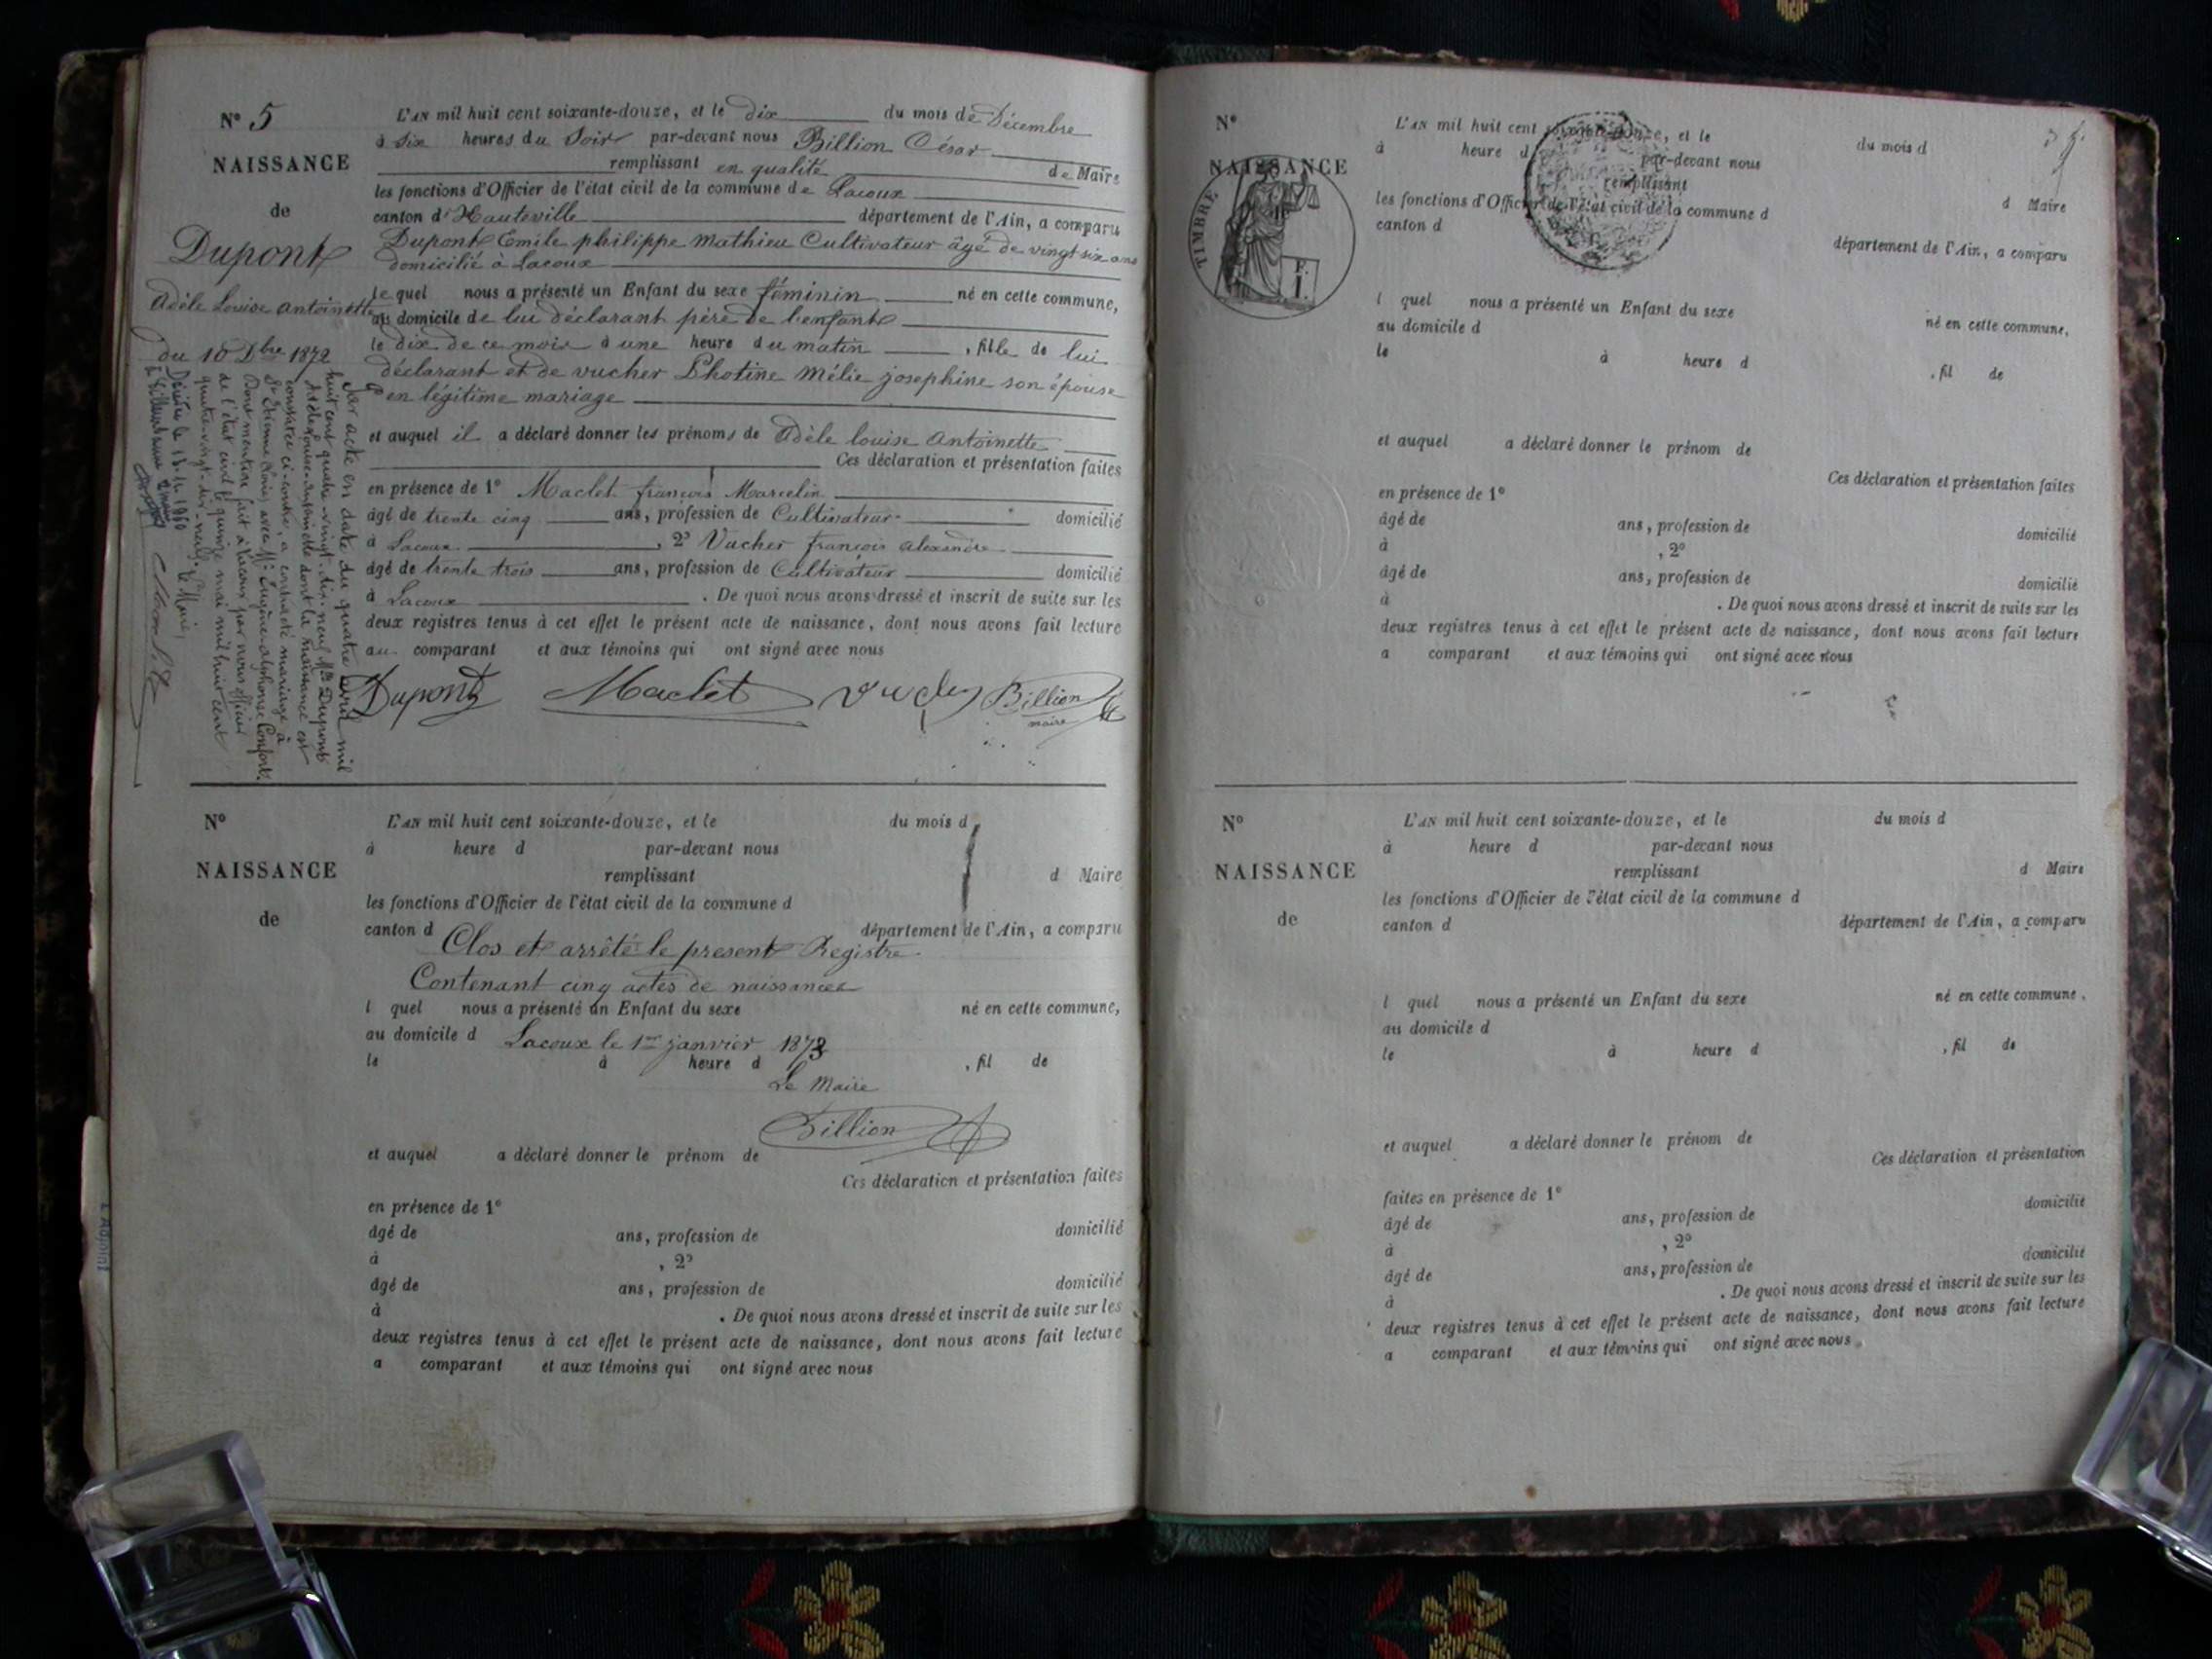 N° 5
NAISSANCE
de
Dupont
Adèle Louise Antoinette
du 10 Dbre 1872
L'AN mil huit cent soixante-douze, et le dix du mois de Décembre
à six heures du Soir par-devant nous Billion César
remplissant en qualité de Maire
les fonctions d'Officier de l'état civil de la commune de Lacoux
canton d'Hauteville département de l'Ain, a comparu
Dupont Emile philippe Mathieu Cultivateur âgé de vingt six ans
domicilié à Lacoux
lequel nous a présenté un Enfant du sexe féminin né en cette commune,
au domicile de lui déclarant père de l'enfant
le dix de ce mois à une heure du matin , fille de lui
déclarant et de vucher Photine Mélie josephine son épouse
en légitime mariage
et auquel il a déclaré donner les prénoms de Adèle louise Antoinette
Ces déclaration et présentation faites
en présence de 1° Maclet françois Marcelin
âgé de trente cinq ans, profession de Cultivateur domicilié
à Lacoux , 2° Vucher françois alexandre
âgé de trente trois ans, profession de Cultivateur domicilié
à Lacoux . De quoi nous avons dressé et inscrit de suite sur les
deux registres tenus à cet effet le présent acte de naissance, dont nous avons fait lecture
au comparant et aux témoins qui ont signé avec nous
Dupont Maclet Vucher Billion
maire
Par acte en date du quatre avril mil
huit cent quatre-vingt-dix-neuf Mlle Dupont
Adèle Louise Antoinette dont la naissance est
constatée ci-contre, a contracté mariage à
avec Mr Eugène alphonse Confort.
Dont mention fait à Lacoux par nous officier
de l'état civil le quinze mai mil huit cent
quatre-vingt-dix-neuf. Le Maire,
Décédée le
à Villeurbanne
N°
NAISSANCE
de
L'AN mil huit cent soixante-douze, et le du mois d
à heure d par-devant nous
remplissant d Maire
les fonctions d'Officier de l'état civil de la commune d
canton d département de l'Ain, a comparu
Clos et arrêté le present Registre
Contenant cinq actes de naissances
l quel nous a présenté un Enfant du sexe né en cette commune,
au domicile d Lacoux le 1er janvier 1873
le à heure d , fil de
Le Maire
Billion
et auquel a déclaré donner le prénom de
Ces déclaration et présentation faites
en présence de 1°
âgé de ans, profession de domicilié
à , 2°
âgé de ans, profession de domicilié
à . De quoi nous avons dressé et inscrit de suite sur les
deux registres tenus à cet effet le présent acte de naissance, dont nous avons fait lecture
a comparant et aux témoins qui ont signé avec nous
L'Adjoint
N°
NAISSANCE
TIMBRE
L'AN mil huit cent soixante-douze, et le du mois d
à heure d par-devant nous
remplissant d Maire
les fonctions d'Officier de l'état civil de la commune d
canton d département de l'Ain, a comparu
l quel nous a présenté un Enfant du sexe né en cette commune,
au domicile d
le à heure d , fil de
et auquel a déclaré donner le prénom de
Ces déclaration et présentation faites
en présence de 1°
âgé de ans, profession de domicilié
à , 2°
âgé de ans, profession de domicilié
à . De quoi nous avons dressé et inscrit de suite sur les
deux registres tenus à cet effet le présent acte de naissance, dont nous avons fait lecture
a comparant et aux témoins qui ont signé avec nous
N°
NAISSANCE
de
L'AN mil huit cent soixante-douze, et le du mois d
à heure d par-devant nous
remplissant d Maire
les fonctions d'Officier de l'état civil de la commune d
canton d département de l'Ain, a comparu
l quel nous a présenté un Enfant du sexe né en cette commune,
au domicile d
le à heure d , fil de
et auquel a déclaré donner le prénom de
Ces déclaration et présentation
faites en présence de 1° domicilié
âgé de ans, profession de
à , 2° domicilié
âgé de ans, profession de
à . De quoi nous avons dressé et inscrit de suite sur les
deux registres tenus à cet effet le présent acte de naissance, dont nous avons fait lecture
a comparant et aux témoins qui ont signé avec nous.